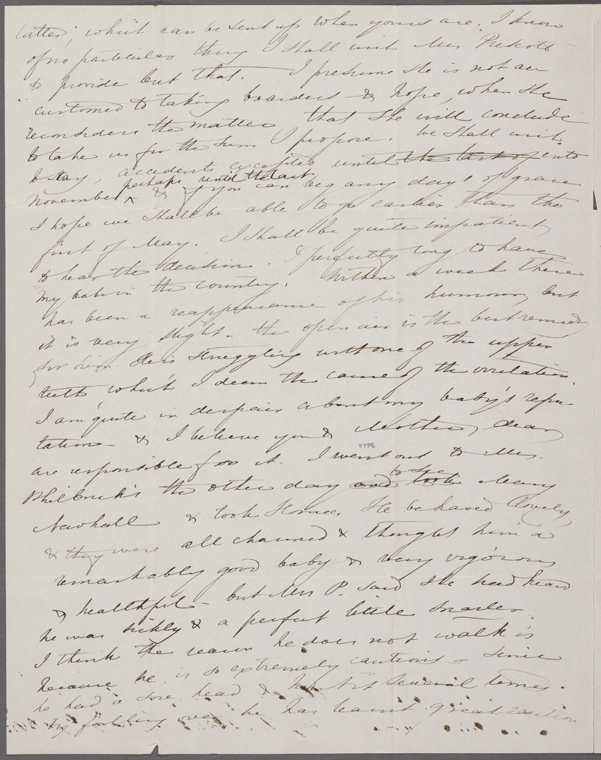 latter; which can be sent up when yours are. I know
of no particular thing I shall wish Mrs
to provide but that. I presume she is not ac
customed to taking boarders & hope, when she
reconsiders the matter that she will conclude
to take us for the sum I propose we shall wish
to stay, accidents excepted until the last of into
November perhaps until the last & if you can beg any days of grace
I hope we shall be able to go earlier than the
first of May. I shall be quite impatient
to hear the decision. I perfectly long to have
my babe in the country. Within a week there
has been a reappearance of his humour, but
it is very slight. the open air is the best remedy
for him. He is struggling with one of the upper
teeth which I deem the cause of the irritation.
I am quite in despair about my baby's repu
tation & I believe you & Mother, dear
are responsible for it. I went out to Mrs.
NYPL
Philbrick's the other day and took to see Mary
Newhall & took Horace He behaved lovely,
& they were all charmed & thought him a
remarkably good baby & very vigorous
& healthful - but Mrs P. said she had heard
he was sickly & a perfect little snarler.
I think the reason he does not walk is
because he is so extremely cautious - since
he had a sore head & hurt it several times.
by falling over he has learnt great caution